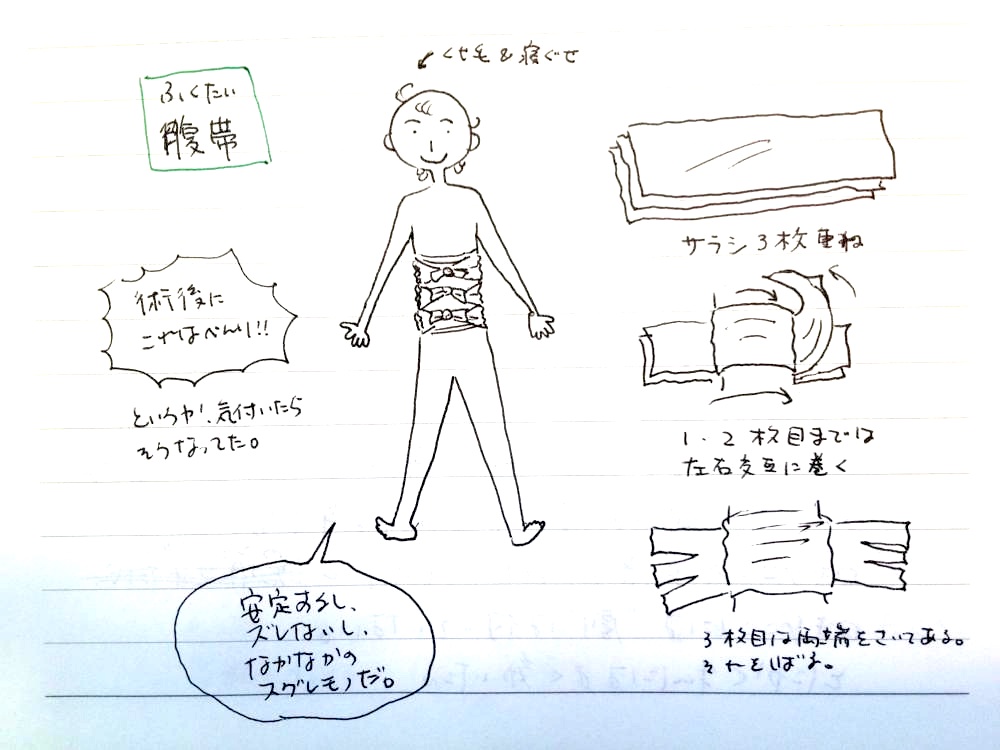 くせ毛&寝ぐせ
ふくたい
腹帯
サラシ3枚重ね
術後に
これはべんり!!
というか、気付いたら
そうなってた。
1・2枚目までは
左右交互に巻く
安定するし、
ズレないし、
なかなかの
スグレモノだ。
3枚目は両端をさいてある。
それをしばる。